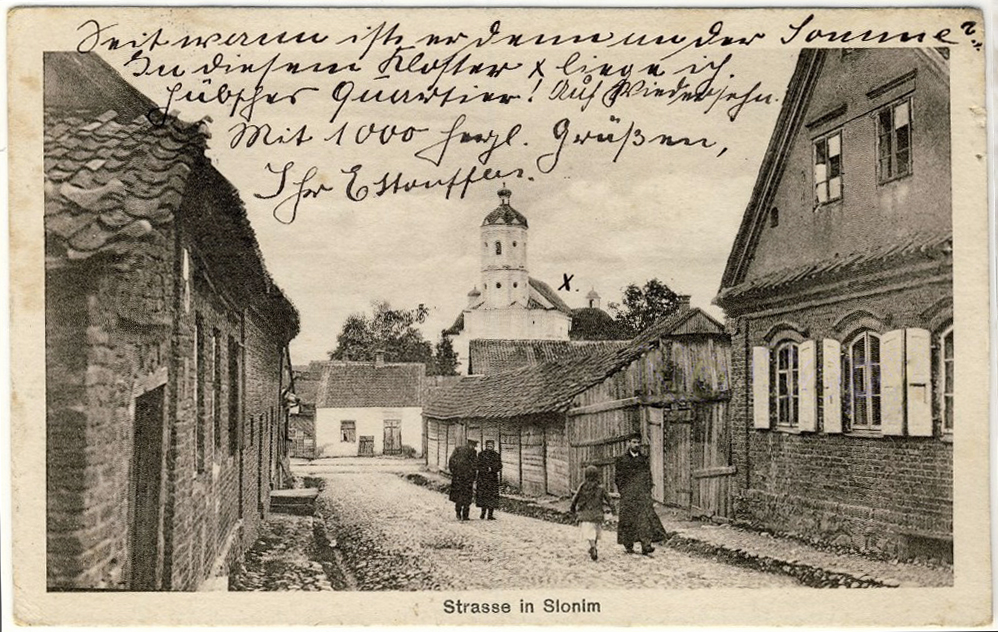 Seit wann ist er denn an der Somme?
In diesem Kloster x liege ich.
Hübsches Quartier! Auf Wiedersehn.
Mit 1000 herzl. Grüßen,
Ihr
x
Strasse in Slonim